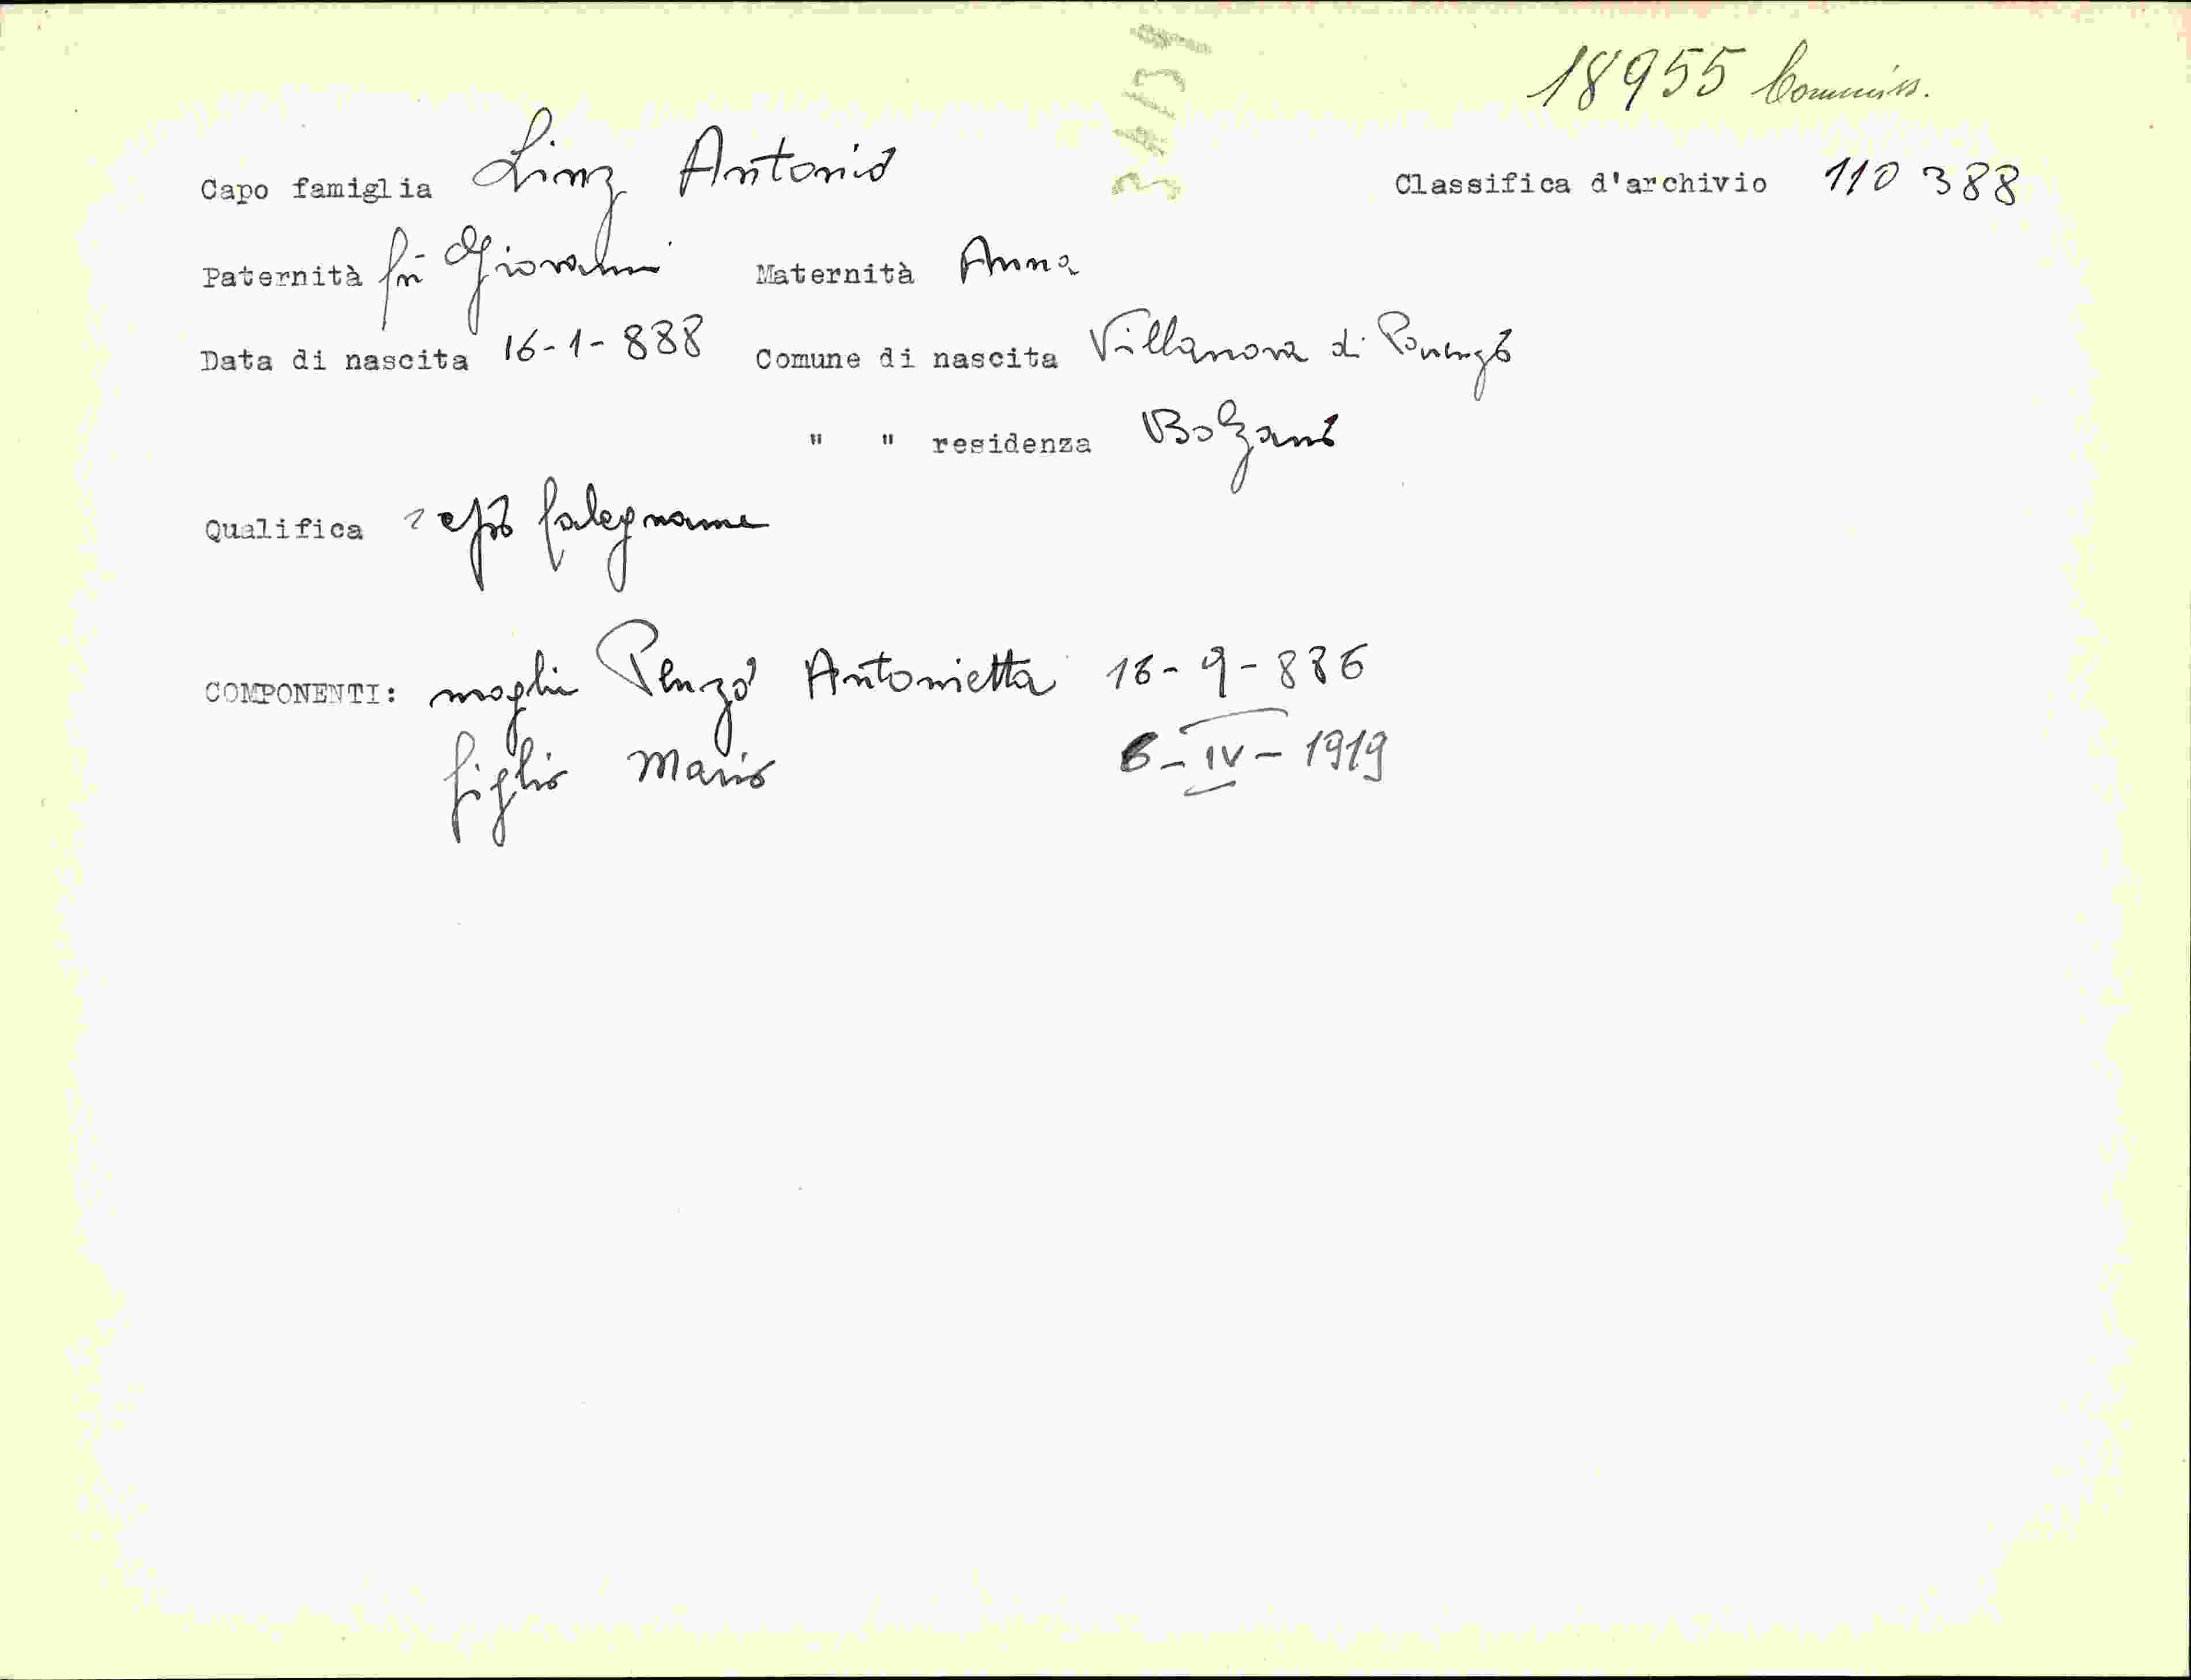 18955 Commiss.
Capo famiglia Linz Antonio Classifica d'archivio 110 388
Paternità fu Giovanni Maternità Anna
Data di nascita 16-1-888 Comune di nascita Villanova di Parenzo
" " residenza Bolzano
Qualifica falegname
COMPONENTI: moglie Penzo Antonietta 16-9-886
figlio Mario 6-IV-1919